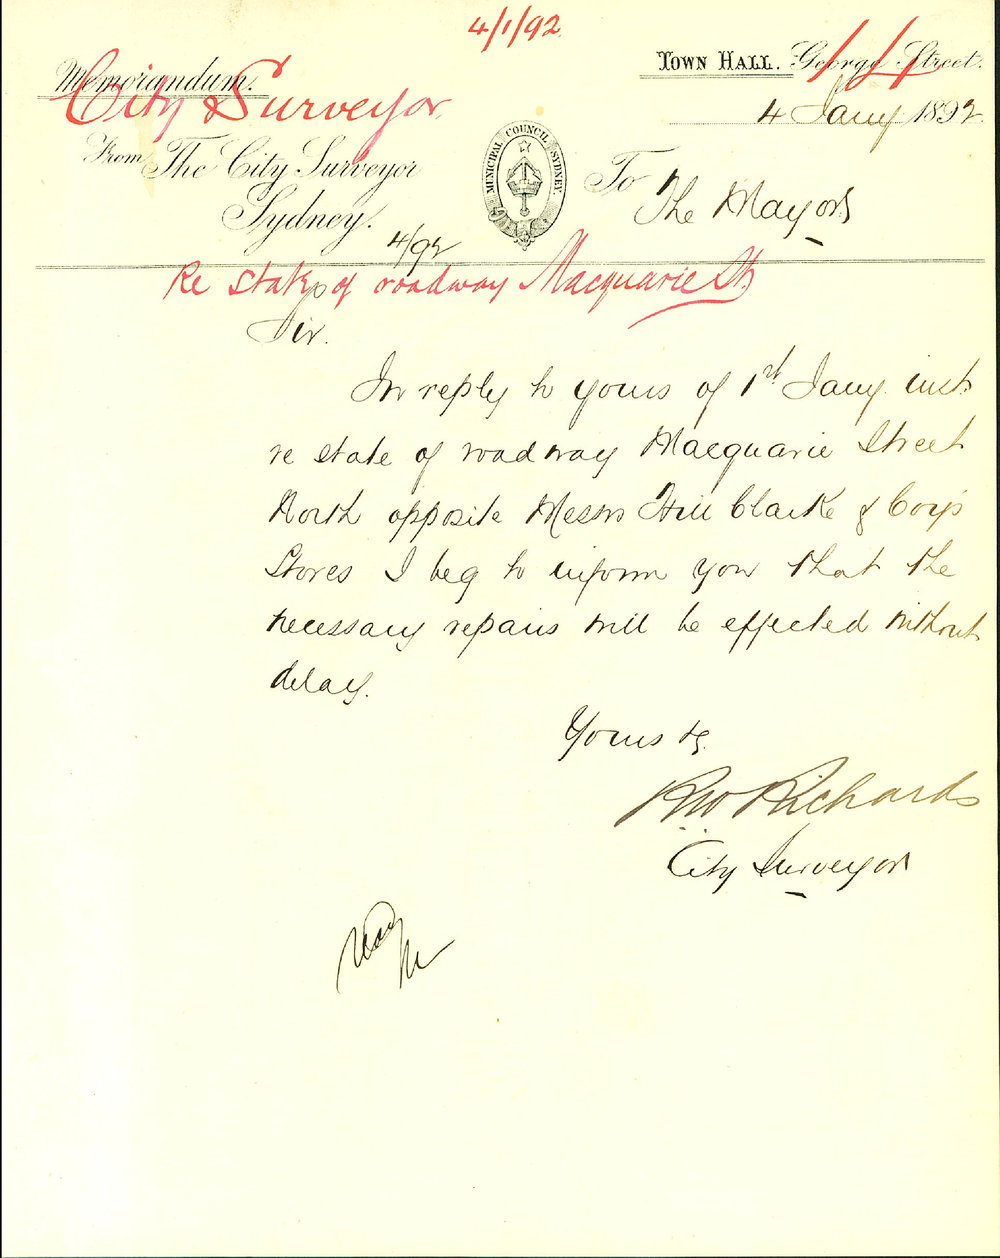 4/1/92
Memorandum.
City Surveyor.
TOWN HALL. George Street.
4 Jany 1892
From The City Surveyor
Sydney.
MUNICIPAL COUNCIL SYDNEY.
To The Mayor
4/92
Re State of roadway Macquarie St.
Sir.
In reply to yours of 1st Jany. inst
re state of roadway Macquarie Street
North opposite Messrs Hill Clarke & Coy's
Stores I beg to inform you that the
necessary repairs will be effected without
delay.
Yours &c.
RW Richards
City Surveyor